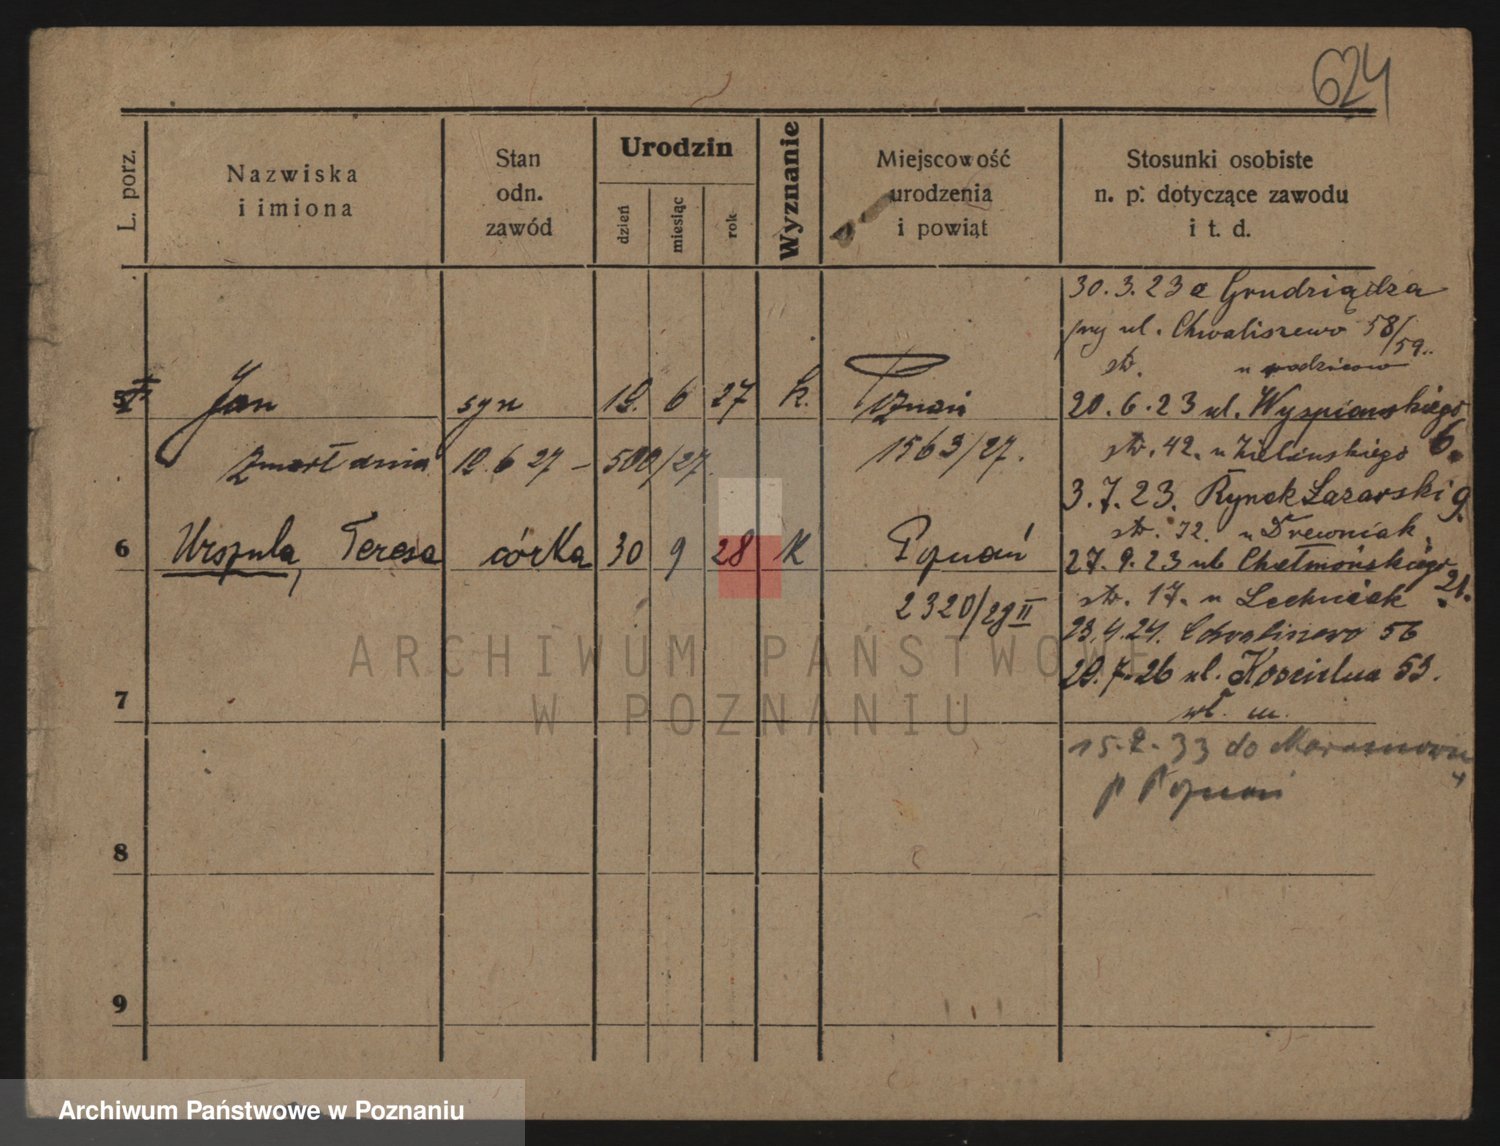 624
L. porz.
Nazwiska
i imiona
Stan
odn.
zawód
Urodzin
dzień
miesiąc
rok
Wyznanie
Miejscowość
urodzenia
i powiąt
Stosunki osobiste
n. p. dotyczące zawodu
i t. d.
30.3.23 z Grudziądza
przy ul. Chwaliszewo 58/59
str. u rodziców
5 Jan syn 12. 6 27 k. Poznań
20.6.23 ul. Wyspiańskiego 6.
zmarł dnia 12.6 27 – 500/27 1563/27.
str. 42. u Zielińskiego
3.7.23. Rynek Łazarski 9.
str. 72. u Drewniak
6 Urszula, Teresa córka 30 9 28 K Poznań
27.9.23 ul. Chełmońskiego 21.
str. 17. u Lechniak
2320/29 II
23.4.24. Chwaliszewo 56
7
29.7.26 ul. Kościelna 53.
wł. m.
15.2.33 do
p Poznań
8
9
ARCHIWUM PAŃSTWOWE
W POZNANIU
Archiwum Państwowe w Poznaniu